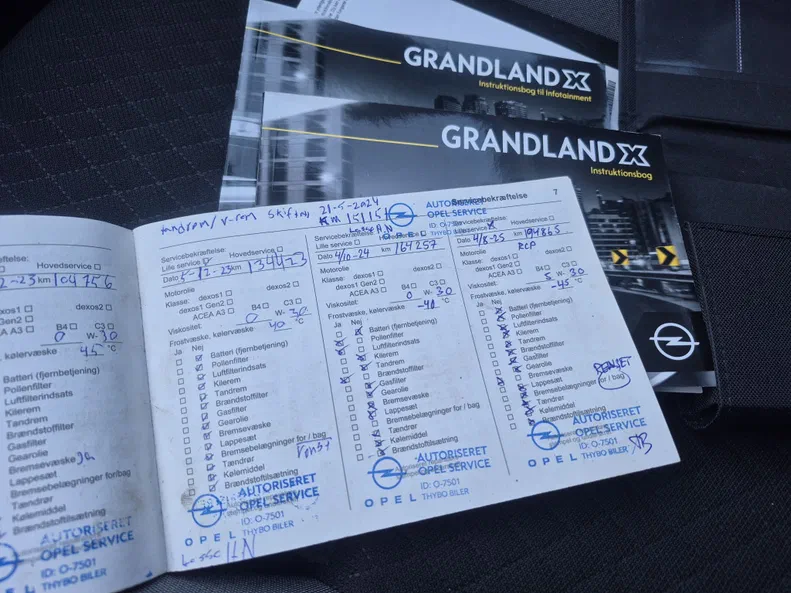 GRANDLAND X
Instruktionsbog til Infotainment
GRANDLAND X
Instruktionsbog
2-23 km 104756
dexos1
dexos2
Gen2
ACEA A3
B4
C3
0 W-30
kølervæske
45 °C
Batteri (fjernbetjening)
Pollenfilter
Luftfilterindsats
Kilerem
Tandrem
Brændstoffilter
Gasfilter
Gearolie
Bremsevæske Ja
Lappesæt
Bremsebelægninger for/bag
Tændrør
Kølemiddel
Brændstoftilsætning
AUTORISERET
OPEL SERVICE
ID: O-7501
THYBO BILER
21-5-2024
KM 151151
Servicebekræftelse:
Lille service Hovedservice
Dato 5-12-23 km 134423
Motorolie
Klasse: dexos1 dexos2
dexos1 Gen2
ACEA A3 B4 C3
Viskositet: 0 W-30
Frostvæske, kølervæske 40 °C
Ja Nej
Batteri (fjernbetjening)
Pollenfilter
Luftfilterindsats
Kilerem
Tandrem
Brændstoffilter
Gasfilter
Gearolie
Bremsevæske
Lappesæt
Bremsebelægninger for / bag
Tændrør
Kølemiddel
Brændstoftilsætning
AUTORISERET
OPEL SERVICE
ID: O-7501
OPEL THYBO BILER
Servicebekræftelse:
Lille service Hovedservice
Dato 4/10-24 km 164257
Motorolie
Klasse: dexos1 dexos2
dexos1 Gen2
ACEA A3 B4 C3
Viskositet: 0 W-30
Frostvæske, kølervæske -40 °C
Ja Nej
Batteri (fjernbetjening)
Pollenfilter
Luftfilterindsats
Kilerem
Tandrem
Brændstoffilter
Gasfilter
Gearolie
Bremsevæske
Lappesæt
Bremsebelægninger for / bag
Tændrør
Kølemiddel
Brændstoftilsætning
AUTORISERET
OPEL SERVICE
ID: O-7501
OPEL THYBO BILER
Servicebekræftelse 7
AUTORISERET
OPEL SERVICE
ID: O-7501
OPEL THYBO BILER
Servicebekræftelse:
Lille service Hovedservice
Dato 4/8-25 km 194865
Motorolie RCP
Klasse: dexos1 dexos2
dexos1 Gen2
ACEA A3 B4 C3
Viskositet: 5 W-30
Frostvæske, kølervæske -45 °C
Ja Nej
Batteri (fjernbetjening)
Pollenfilter
Luftfilterindsats
Kilerem
Tandrem
Brændstoffilter
Gasfilter
Gearolie
Bremsevæske
Lappesæt
Bremsebelægninger for / bag
Tændrør
Kølemiddel
Brændstoftilsætning
AUTORISERET
OPEL SERVICE
ID: O-7501
OPEL THYBO BILER